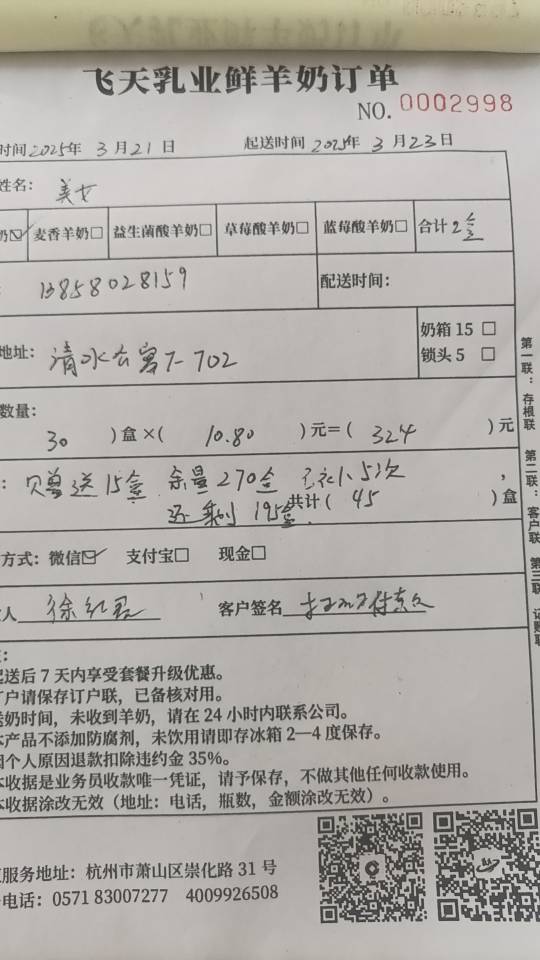 飞天乳业鲜羊奶订单
NO. 0002998
时间 2025年 3月21日 起送时间 2025年 3月23日
姓名: 美女
奶☑ 麦香羊奶□ 益生菌酸羊奶□ 草莓酸羊奶□ 蓝莓酸羊奶□ 合计 2
13858028159 配送时间:
地址: 清水公寓7-702 奶箱 15 □
锁头 5 □
数量:
30 )盒×( 10.80 )元=( 324 )元
: 赠送15盒 余量270盒 5次
还剩195盒 共计( 45 )盒
方式: 微信☑ 支付宝□ 现金□
人 徐红君 客户签名
:
起送后 7 天内享受套餐升级优惠。
订户请保存订户联,已备核对用。
送奶时间,未收到羊奶,请在 24 小时内联系公司。
本产品不添加防腐剂,未饮用请即存冰箱 2—4 度保存。
因个人原因退款扣除违约金 35%。
本收据是业务员收款唯一凭证,请予保存,不做其他任何收款使用。
本收据涂改无效(地址:电话,瓶数,金额涂改无效)。
服务地址:杭州市萧山区崇化路 31 号
电话:0571 83007277 4009926508
第一联:存根联 第二联:客户联 第三联:记账联